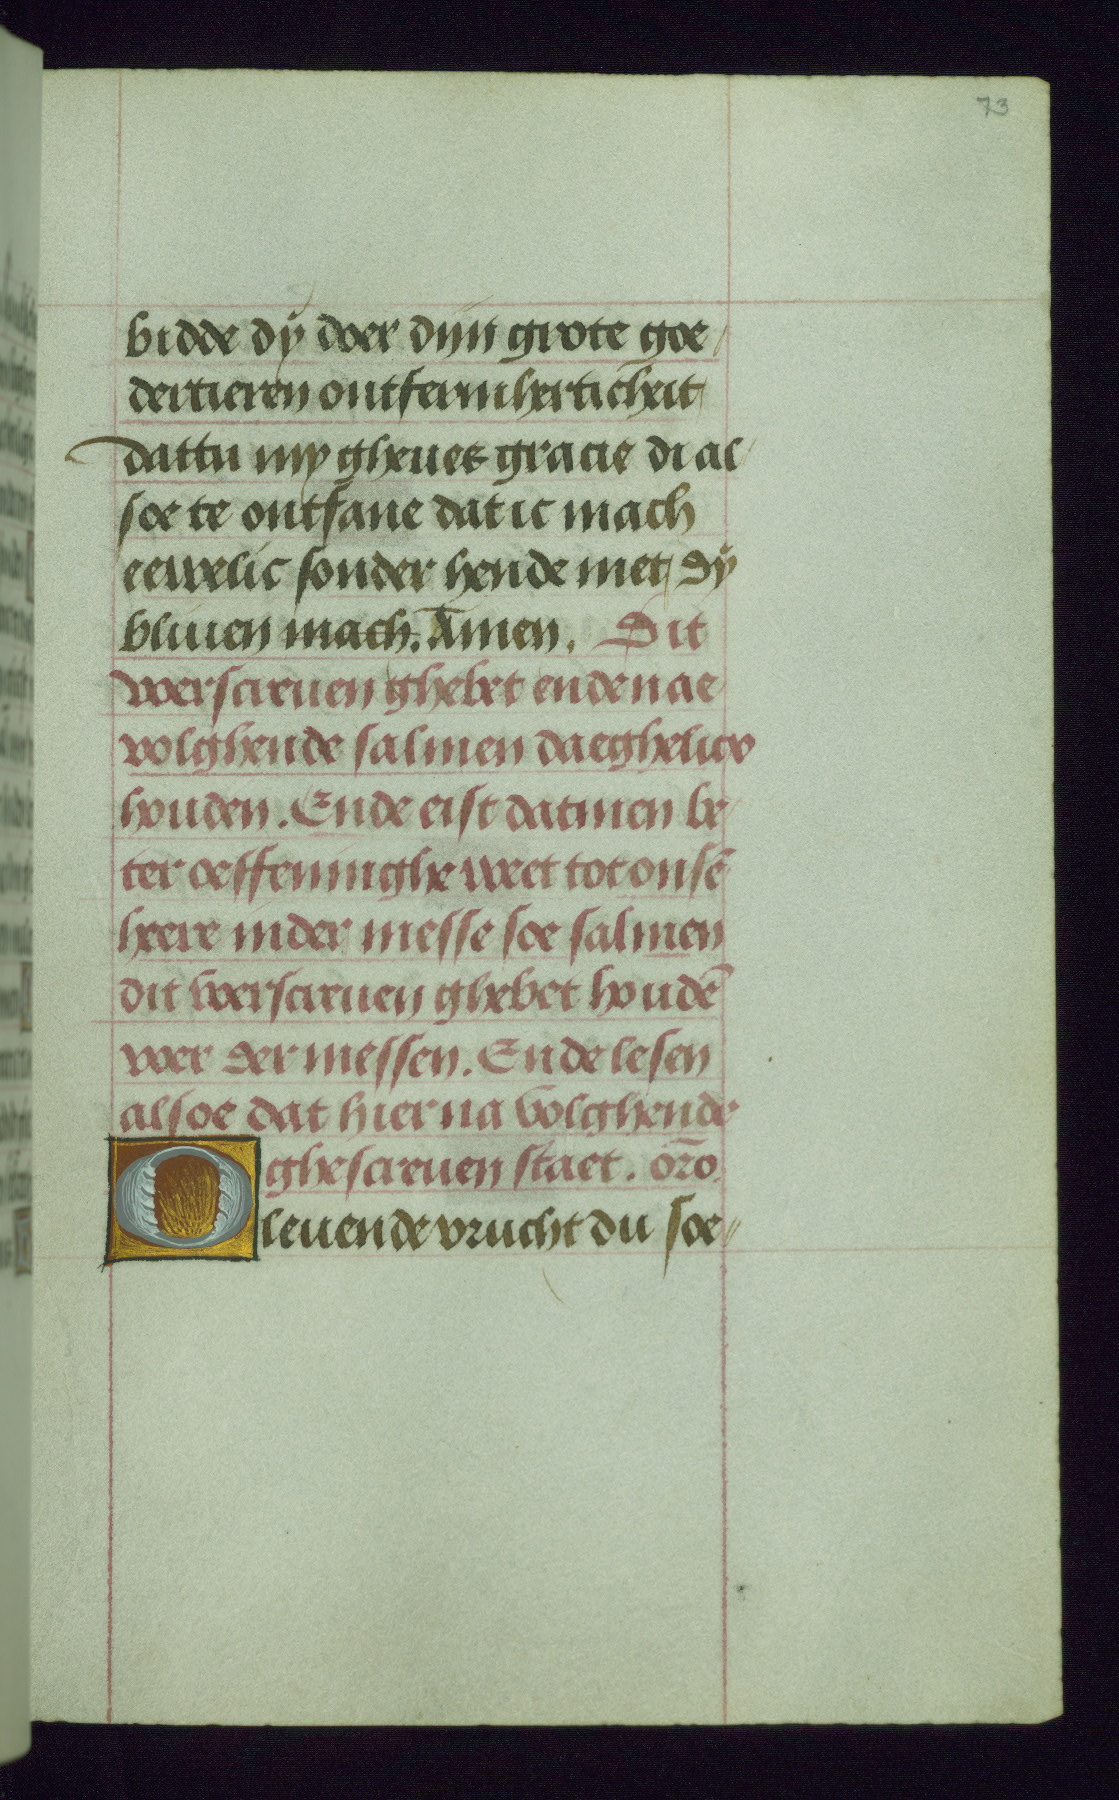 73
bidde dÿ doer dijn grote goe/
dertieren ontfermhertich̄eit
dattu my gheues gracie di al/
soe te ontfane dat ic mach
eewelic sonder hende met dÿ
bliuen mach. Amen. Dit
voerscreuen ghebet ende nae
volghende salmen daeghelicx
houden. Ende eist datmen be/
ter oeffeninghe weet tot onsē
heere inder messe soe salmen
dit voerscreuen ghebet houdē
voer der messen. Ende lesen
alsoe dat hier na volghende
ghescreuen staet. or̄o.
O leuende vrucht du soe//